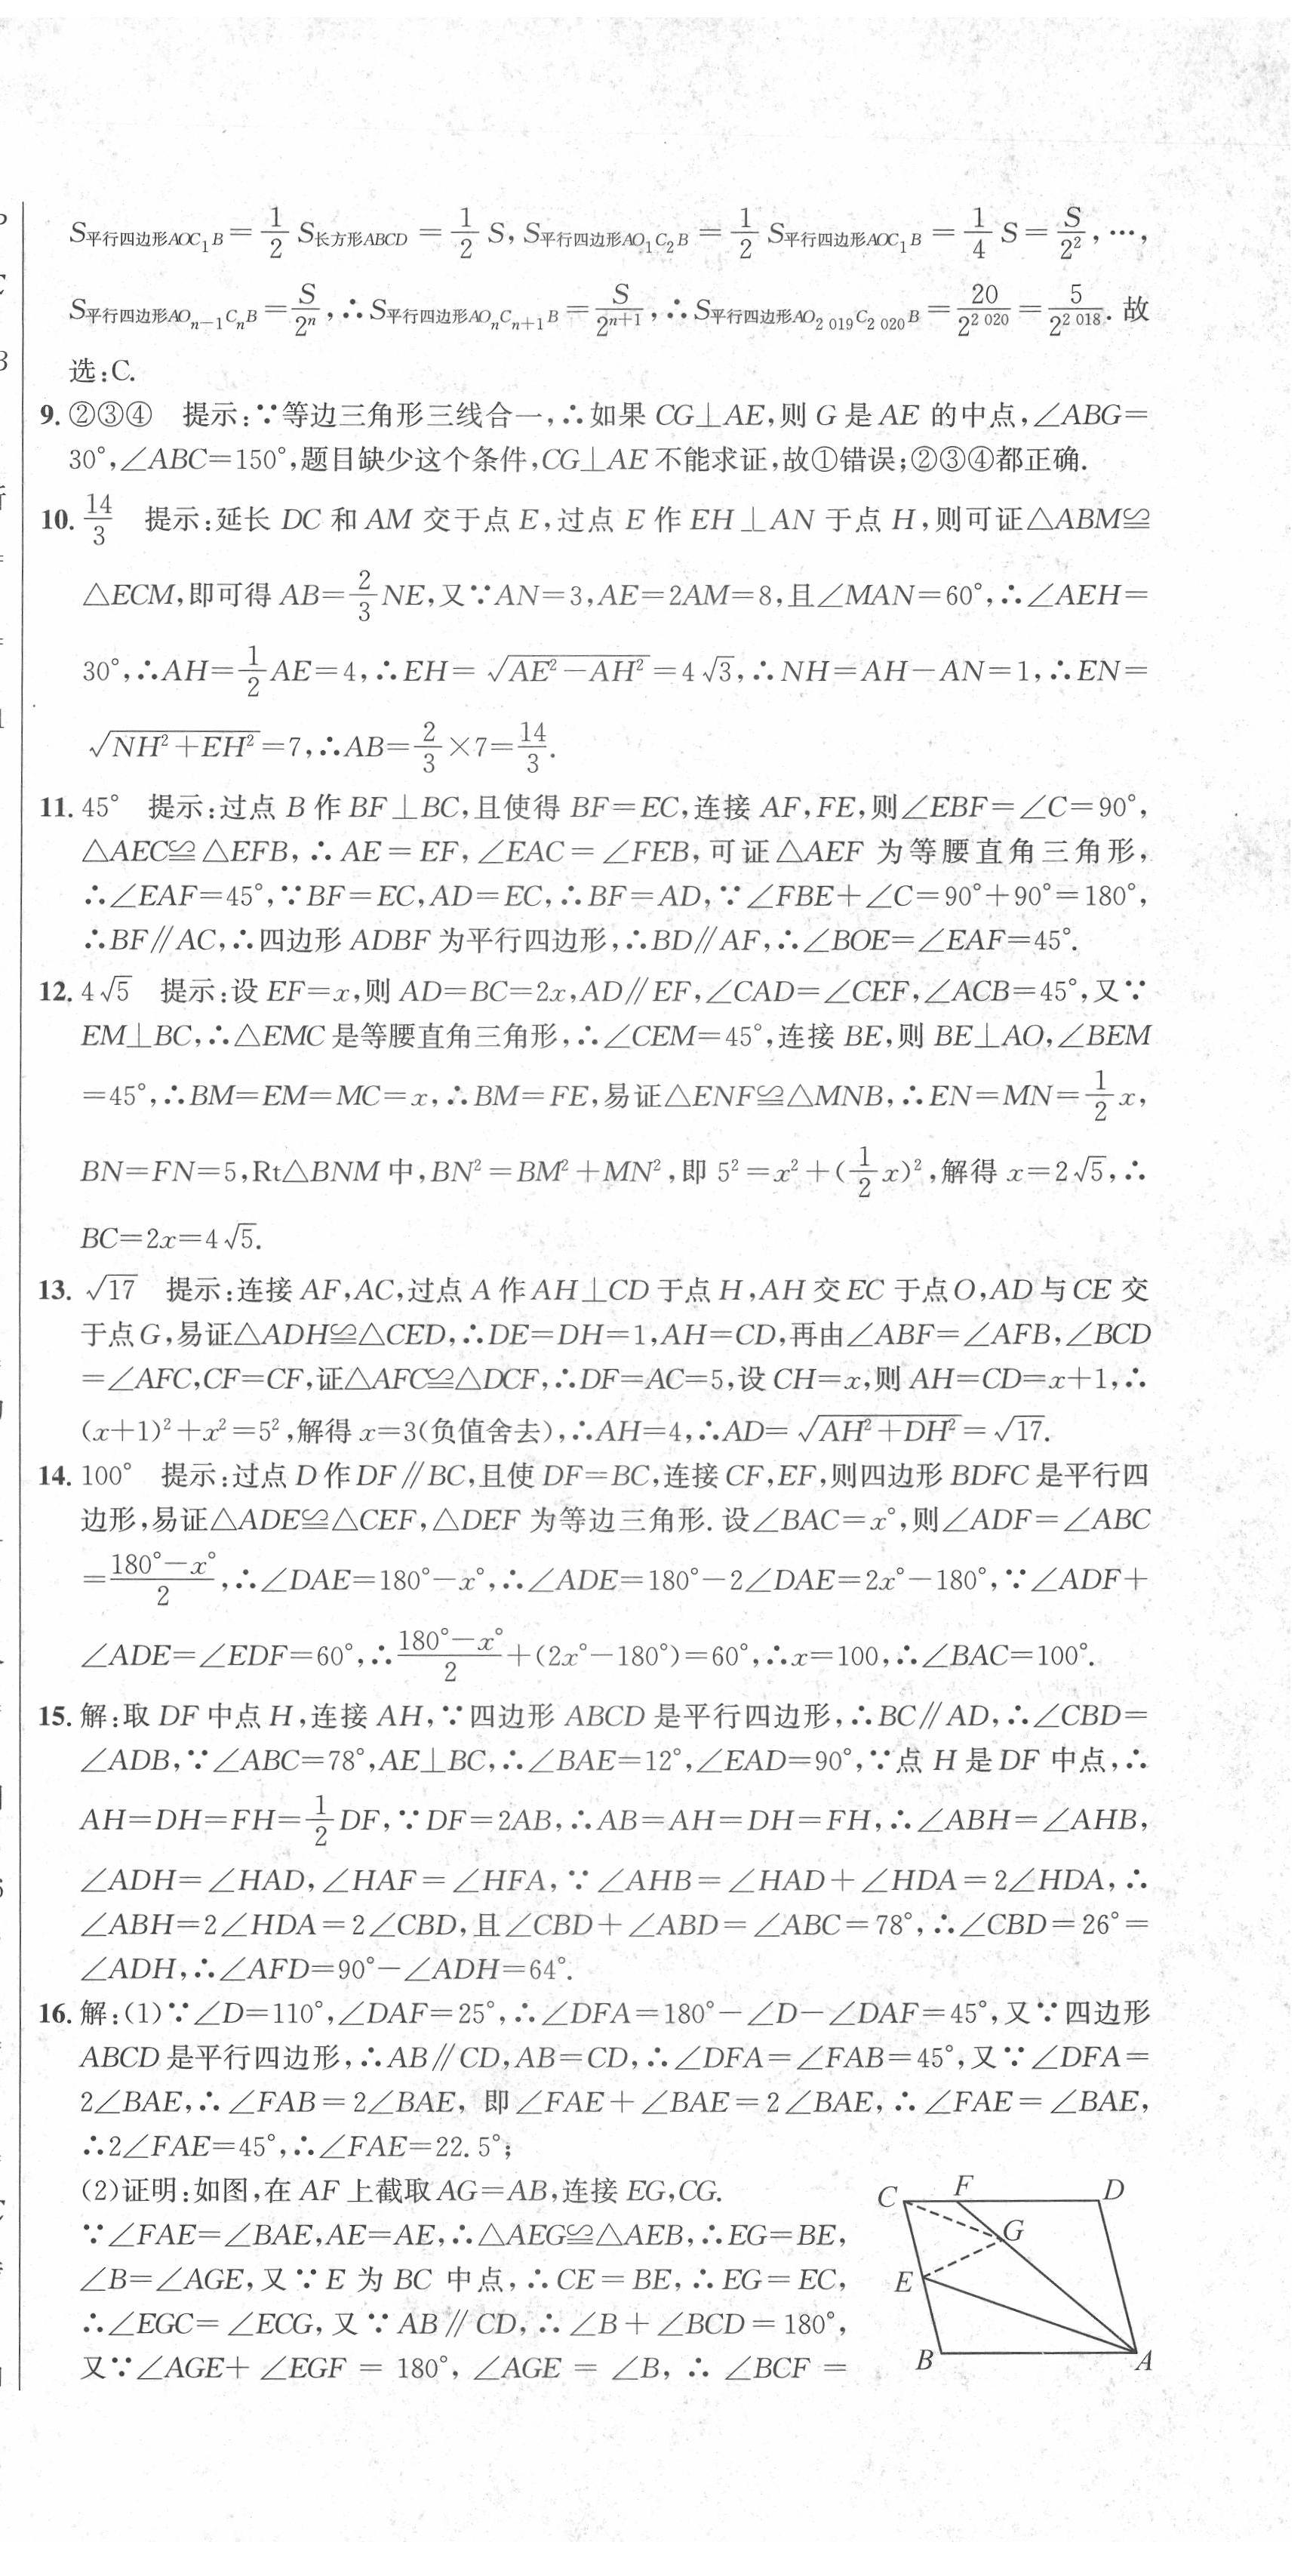 S平行四边形AOC₁B=1/2 S长方形ABCD=1/2 S, S平行四边形AO₁C₂B=1/2 S平行四边形AOC₁B=1/4 S=S/2²,…,
S平行四边形AOₙ₋₁CₙB=S/2ⁿ,∴S平行四边形AOₙCₙ₊₁B=S/2ⁿ⁺¹,∴S平行四边形AO₂ ₀₁₉C₂ ₀₂₀B=20/2² ⁰²⁰=5/2² ⁰¹⁸. 故
选:C.
9. ②③④ 提示:∵等边三角形三线合一,∴如果 CG⊥AE,则 G 是 AE 的中点,∠ABG=
30°,∠ABC=150°,题目缺少这个条件,CG⊥AE 不能求证,故①错误;②③④都正确.
10. 14/3 提示:延长 DC 和 AM 交于点 E,过点 E 作 EH⊥AN 于点 H,则可证△ABM≌
△ECM,即可得 AB=2/3 NE,又∵AN=3,AE=2AM=8,且∠MAN=60°,∴∠AEH=
30°,∴AH=1/2 AE=4,∴EH=√(AE²-AH²)=4√3,∴NH=AH-AN=1,∴EN=
√(NH²+EH²)=7,∴AB=2/3×7=14/3.
11. 45° 提示:过点 B 作 BF⊥BC,且使得 BF=EC,连接 AF,FE,则∠EBF=∠C=90°,
△AEC≌△EFB,∴AE=EF,∠EAC=∠FEB,可证△AEF 为等腰直角三角形,
∴∠EAF=45°,∵BF=EC,AD=EC,∴BF=AD,∵∠FBE+∠C=90°+90°=180°,
∴BF∥AC,∴四边形 ADBF 为平行四边形,∴BD∥AF,∴∠BOE=∠EAF=45°.
12. 4√5 提示:设 EF=x,则 AD=BC=2x,AD∥EF,∠CAD=∠CEF,∠ACB=45°,又∵
EM⊥BC,∴△EMC 是等腰直角三角形,∴∠CEM=45°,连接 BE,则 BE⊥AO,∠BEM
=45°,∴BM=EM=MC=x,∴BM=FE,易证△ENF≌△MNB,∴EN=MN=1/2 x,
BN=FN=5,Rt△BNM 中,BN²=BM²+MN²,即 5²=x²+(1/2 x)²,解得 x=2√5,∴
BC=2x=4√5.
13. √17 提示:连接 AF,AC,过点 A 作 AH⊥CD 于点 H,AH 交 EC 于点 O,AD 与 CE 交
于点 G,易证△ADH≌△CED,∴DE=DH=1,AH=CD,再由∠ABF=∠AFB,∠BCD
=∠AFC,CF=CF,证△AFC≌△DCF,∴DF=AC=5,设 CH=x,则 AH=CD=x+1,∴
(x+1)²+x²=5²,解得 x=3(负值舍去),∴AH=4,∴AD=√(AH²+DH²)=√17.
14. 100° 提示:过点 D 作 DF∥BC,且使 DF=BC,连接 CF,EF,则四边形 BDFC 是平行四
边形,易证△ADE≌△CEF,△DEF 为等边三角形. 设∠BAC=x°,则∠ADF=∠ABC
=(180°-x°)/2,∴∠DAE=180°-x°,∴∠ADE=180°-2∠DAE=2x°-180°,∵∠ADF+
∠ADE=∠EDF=60°,∴(180°-x°)/2+(2x°-180°)=60°,∴x=100,∴∠BAC=100°.
15. 解:取 DF 中点 H,连接 AH,∵四边形 ABCD 是平行四边形,∴BC∥AD,∴∠CBD=
∠ADB,∵∠ABC=78°,AE⊥BC,∴∠BAE=12°,∠EAD=90°,∵点 H 是 DF 中点,∴
AH=DH=FH=1/2 DF,∵DF=2AB,∴AB=AH=DH=FH,∴∠ABH=∠AHB,
∠ADH=∠HAD,∠HAF=∠HFA,∵∠AHB=∠HAD+∠HDA=2∠HDA,∴
∠ABH=2∠HDA=2∠CBD,且∠CBD+∠ABD=∠ABC=78°,∴∠CBD=26°=
∠ADH,∴∠AFD=90°-∠ADH=64°.
16. 解:(1)∵∠D=110°,∠DAF=25°,∴∠DFA=180°-∠D-∠DAF=45°,又∵四边形
ABCD 是平行四边形,∴AB∥CD,AB=CD,∴∠DFA=∠FAB=45°,又∵∠DFA=
2∠BAE,∴∠FAB=2∠BAE,即∠FAE+∠BAE=2∠BAE,∴∠FAE=∠BAE,
∴2∠FAE=45°,∴∠FAE=22.5°;
(2)证明:如图,在 AF 上截取 AG=AB,连接 EG,CG.
∵∠FAE=∠BAE,AE=AE,∴△AEG≌△AEB,∴EG=BE,
∠B=∠AGE,又∵E 为 BC 中点,∴CE=BE,∴EG=EC,
∴∠EGC=∠ECG,又∵AB∥CD,∴∠B+∠BCD=180°,
又∵∠AGE+∠EGF=180°,∠AGE=∠B,∴∠BCF=
C F D
G
E
B A